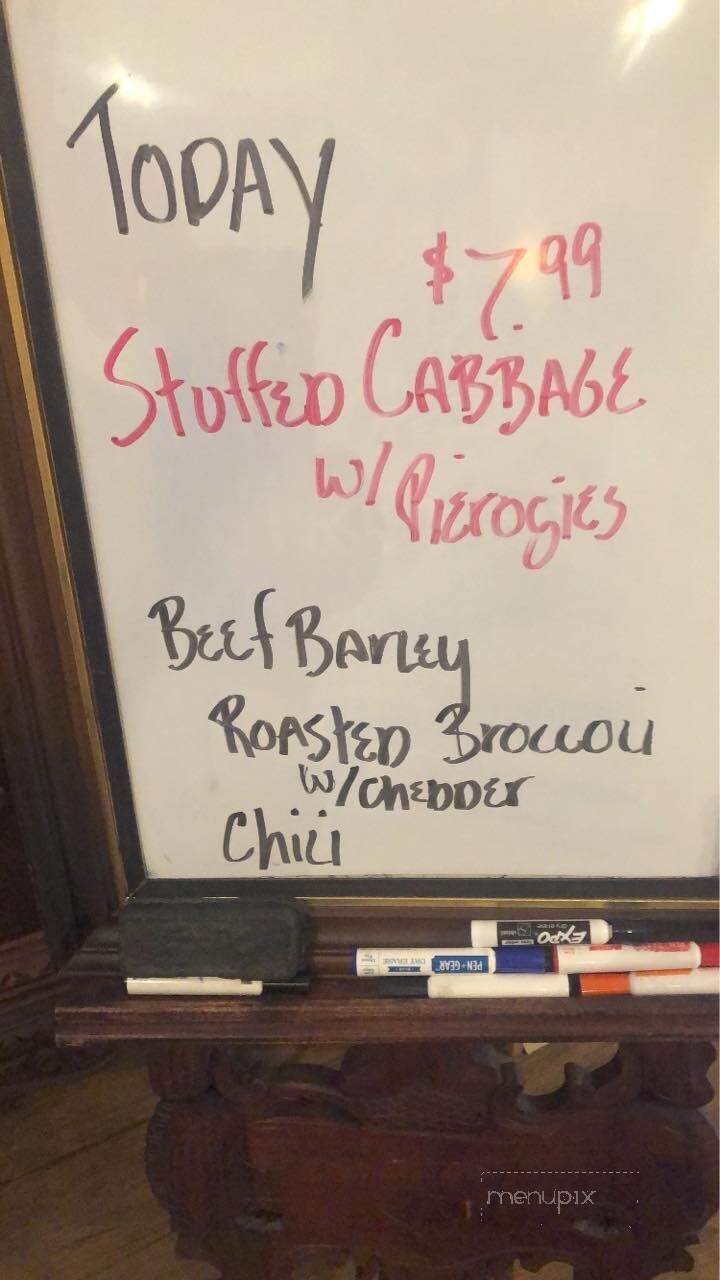 TODAY
$7.99
Stuffed CABBAGE
w/ Pierogies
Beef Barley
Roasted Broccoli
w/ Chedder
Chili
EXPO
DRY ERASE PEN+GEAR
menupix